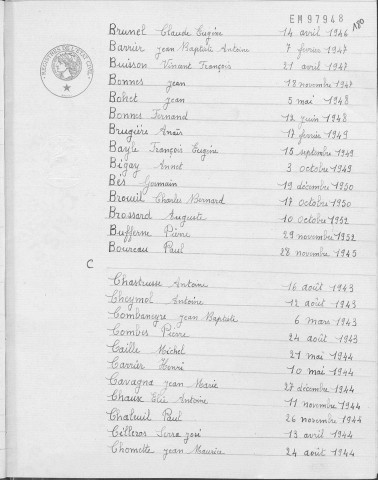 EM97948
180
Brunel Claude Eugène 14 avril 1946
Barrier Jean Baptiste Antoine 7 février 1947
Buisson Vincent François 21 avril 1947
Bonnes Jean 18 novembre 1947
Bohet Jean 5 mai 1948
Bonnes Fernand 12 juin 1948
Brugière Anaïs 17 février 1949
Bayle François Eugène 15 septembre 1949
Bigay Annet 3 octobre 1949
Bès Germain 19 décembre 1950
Brouil Charles Bernard 17 octobre 1950
Brossard Auguste 10 octobre 1952
Bufferne Pierre 29 novembre 1952
Boureau Paul 28 novembre 1945
C
Chastrusse Antoine 16 août 1943
Cheymol Antoine 12 août 1943
Combaneyre Jean Baptiste 6 mars 1943
Combes Pierre 24 août 1943
Caille Michel 21 mai 1944
Carrier Henri 10 mai 1944
Cavagna Jean Marie 27 décembre 1944
Chaux Elie Antoine 11 novembre 1944
Chaleuil Paul 26 novembre 1944
Cilleros Serra José 13 avril 1944
Chomette Jean Maurice 24 août 1944